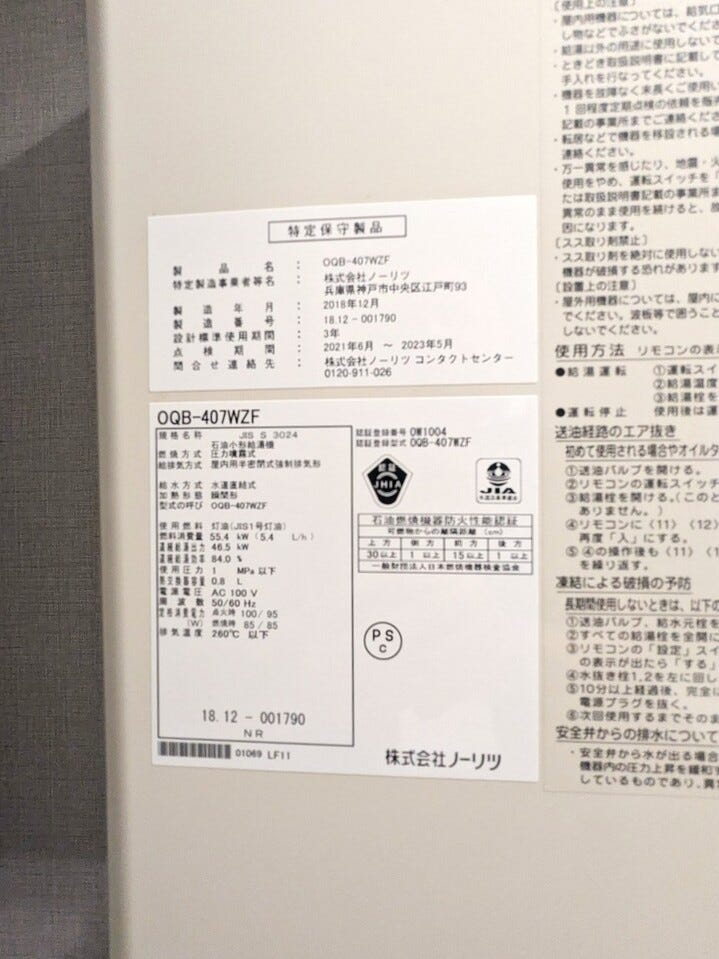 特定保守製品
製品名 : OQB-407WZF
特定製造事業者等名 : 株式会社ノーリツ
兵庫県神戸市中央区江戸町93
製造年月 : 2018年12月
製造番号 : 18.12-001790
設計標準使用期間 : 3年
点検期間 : 2021年6月 ～ 2023年5月
問合せ連絡先 : 株式会社ノーリツ コンタクトセンター
0120-911-026
OQB-407WZF
規格名称 JIS S 3024
石油小形給湯機
燃焼方式 圧力噴霧式
給排気方式 屋内用半密閉式強制排気形
給水方式 水道直結式
加熱形態 瞬間形
型式の呼び OQB-407WZF
使用燃料 灯油(JIS1号灯油)
燃料消費量 55.4 kW (5.4 L/h)
連続給湯出力 46.5 kW
連続給湯効率 84.0 %
使用圧力 1 MPa以下
熱交換器容量 0.8 L
電源電圧 AC 100 V
周波数 50/60 Hz
定格消費電力 点火時 100/95
(W) 燃焼時 85/85
排気温度 260℃ 以下
18.12 - 001790
NR
01069 LF11
認証登録番号 OW1004
認証登録型式 OQB-407WZF
認証
JHIA
JIA
石油燃焼機器防火性能認証
可燃物からの離隔距離 (cm)
上方 側方 前方 後方
30以上 1以上 15以上 1以上
一般財団法人日本燃焼機器検査協会
PS
C
株式会社ノーリツ
[使用上の注意]
・屋内用機器については、給気口
し物などでふさがないでくだ
・給湯以外の用途に使用しないで
・ときどき取扱説明書に記載して
手入れを行なってください。
・機器を故障なく末長くご使用い
1回程度定期点検の依頼を販売
記載の事業所までご連絡くださ
・転居などで機器を移設される場
連絡ください。
・万一異常を感じたり、地震・火
使用をやめ、運転スイッチを「
たは取扱説明書記載の事業所ま
異常のまま使用を続けると、故
因になります。
[スス取り剤禁止]
・スス取り剤を絶対に使用しない
機器が破損する恐れがあります
[設置上の注意]
・屋外用機器については、屋内に
でください。波板等で囲うこと
しないでください。
使用方法 リモコンの表
●給湯運転 ①運転スイ
②給湯温度
③給湯栓を
●運転停止 使用後は運
送油経路のエア抜き
初めて使用される場合やオイルタ
①送油バルブを開ける。
②リモコンの運転スイッチ
③給湯栓を開ける。(このと
ありません。)
④リモコンに〈11〉〈12〉
再度「入」にする。
⑤④の操作後も〈11〉〈1
を繰り返す。
凍結による破損の予防
長期間使用しないときは、以下の
①送油バルブ、給水元栓を
②すべての給湯栓を全開に
③リモコンの「設定」スイ
の表示が出たら「する」
④水抜き栓1,2を左に回し
⑤10分以上経過後、完全に
電源プラグを抜く。
⑥次回使用するまでそのま
安全弁からの排水について
・安全弁から水が出る場合
機器内の圧力上昇を緩和す
しているものであり、異常